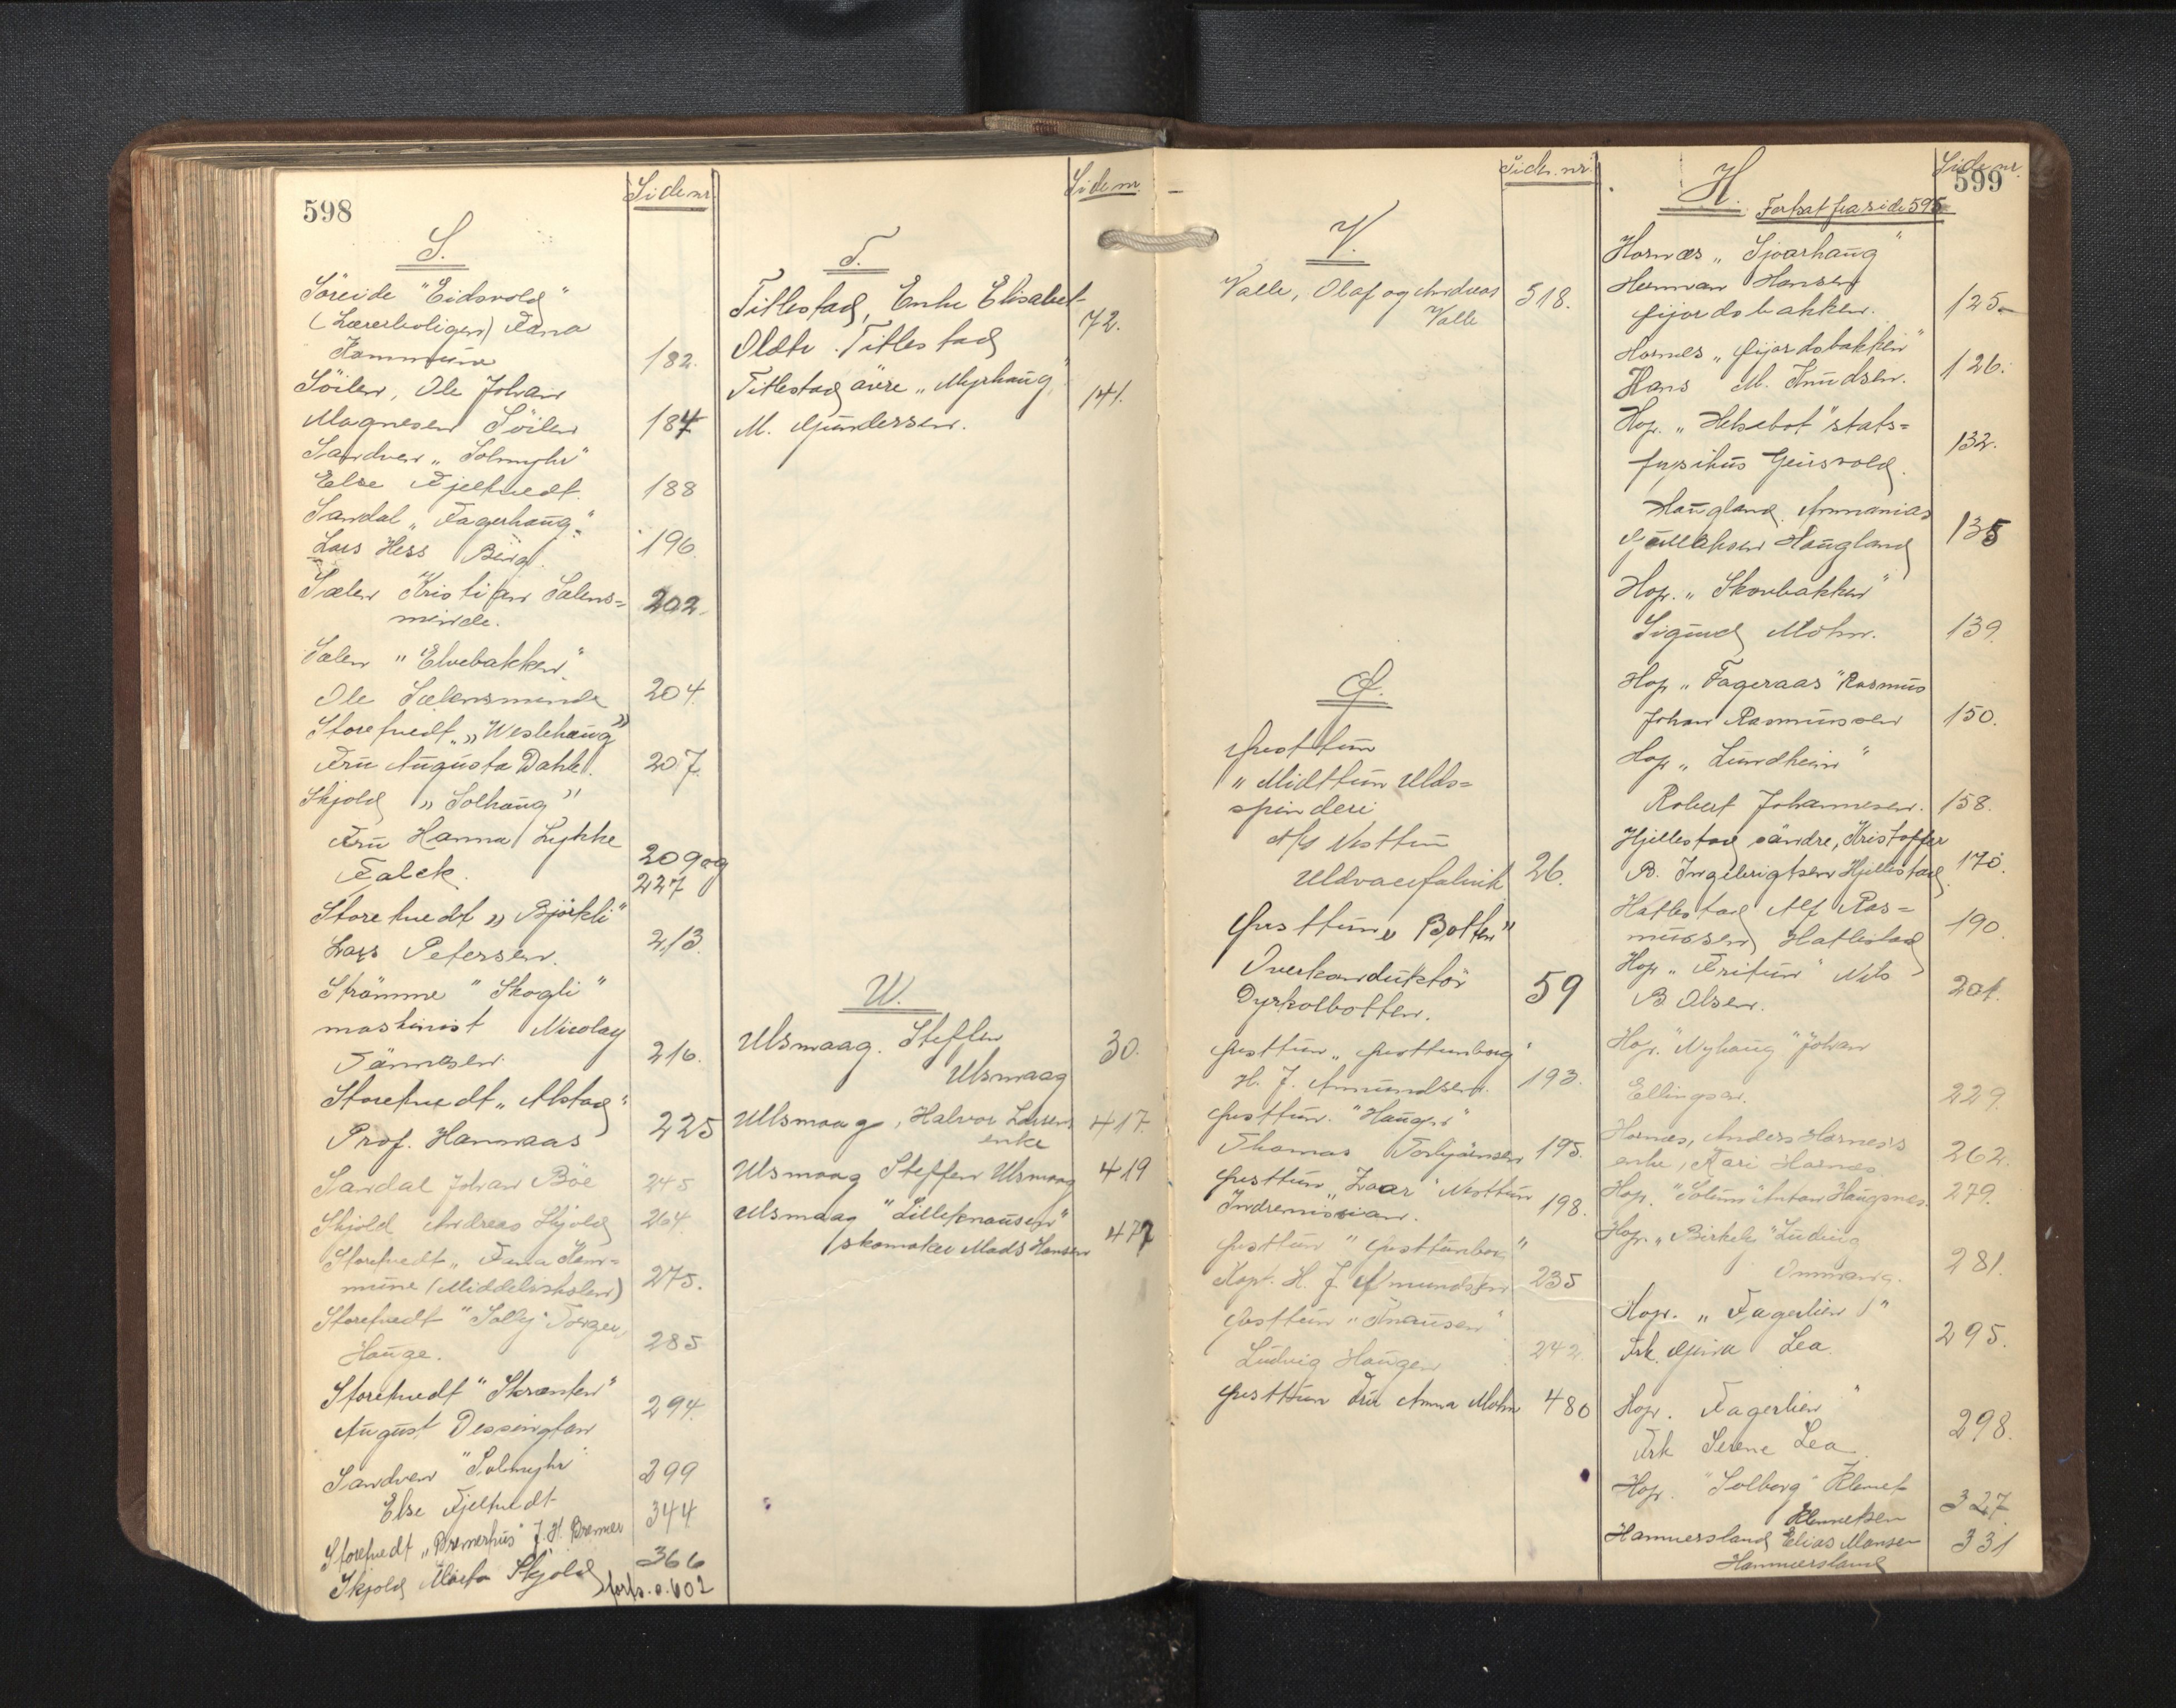 598
Side nr.
S.
Söreide "Eidsvold"
(Lærerboligen) Fana
Kommune 182.
Söilen, Ole Johan
Magnesen Söilen 187
Sandven „Solmyhr"
Else Fjeltvedt. 188
Sandal „Fagerhaug"
Lars Hess Bing. 196
Sælen Kristian Sælens=
minde. 202.
Sælen "Elvebakken"
Ole Sælensminde 204.
Storetvedt „Weslehaug"
Fru Augusta Dahl. 207.
Skjold „Solhaug"
Fru Hanna Lykke
Falck. 209 og
227
Storetvedt „Björkli"
Lars Petersen. 213.
Strömme "Skogli"
maskinist Nicolay
Tönnesen. 216.
Storetvedt „Alstad"
Prof. Hannaas 225
Sandal Johan Böe 245
Skjold Andreas Skjold 264.
Storetvedt „Fana Kom=
mune (Middelsskolen) 275.
Storetvedt "Solby" Torger
Hauge. 285
Storetvedt "Skrænten"
August Dessington 294.
Sandven "Solmyhr"
Else Fjeltvedt 299
Storetvedt „Bremerhus" J. H. Bremer 344.
Skjold Marta Skjold 366
forts. s. 602
Side nr.
T.
Titlestad, Enke Elisabet
Oldte Titlestad 72.
Titlestad övre „Myrhaug"
M. Gundersen. 141.
U.
Ulsmaag. Steffen
Ulsmaag 30.
Ullsmaag, Halvor Larsens
enke 417
Ulsmaag Steffen Ulsmaag 419
Ulsmaag "Lilleknausen"
skomaker Mads Hansen 477
Side. nr.
V.
Valle, Olaf og Andreas
Valle 318.
Ø.
Østtun
„Midttun Ulds=
spinderi
A/S Nesttun
Uldvarefabrik 26.
Østtun „Botten"
Overkonduktör
Dyrkolbotten. 59
Østtun „Østtunborg"
H. J. Amundsen. 193.
Østtun. "Haugen"
Thomas Torbjörnsen 195.
Østtun "Zoar" Nesttun
Indremission. 198.
Østtun "Østtunborg"
Kapt. H. J. Amundsen 235
Østtun „Knausen"
Ludvig Haugen 242.
Østtun Fru Anna Mohn 480
Side nr.
599
H.
Fortsat fra side 595
Hornæs „Sjoarhaug"
Herman Hansen
Gjordsbakken. 125.
Hornæs „Gjordsbakken"
Hans M. Knudsen. 126.
Hop. „Helsebot" stats=
fysikus Geirsvold. 132.
Haugland, Ammanias
Gullaksen Haugland 135
Hop. „Skovbakken"
Sigurd Mohn. 139.
Hop „Fageraas" Rasmus
Johan Rasmussen 150.
Hop „Lundheim"
Robert Johannesen. 158.
Hjellestad söndre, Kristoffer
B. Ingebrigtsen Hjellestad 170.
Hatlestad Alf Ras=
mussen Hatlestad 190.
Hop „Fritun" Nils
B Olsen. 201.
Hop. "Nyhaug" Johan
Ellingsen. 229
Hornæs, Anders Hornæs's
enke, Kari Hornæs. 262.
Hop. "Soltun" Anton Haugsnes. 279.
Hop. „Birkely" Ludvig
281.
Hop. „Fagerlien"
Frk. Lea 295.
Hop. Fagerlien"
Frk Serene Lea 298.
Hop. "Solborg" Klemet
Klemetsen 327.
Hammersland Elias Monsen
Hammersland 331